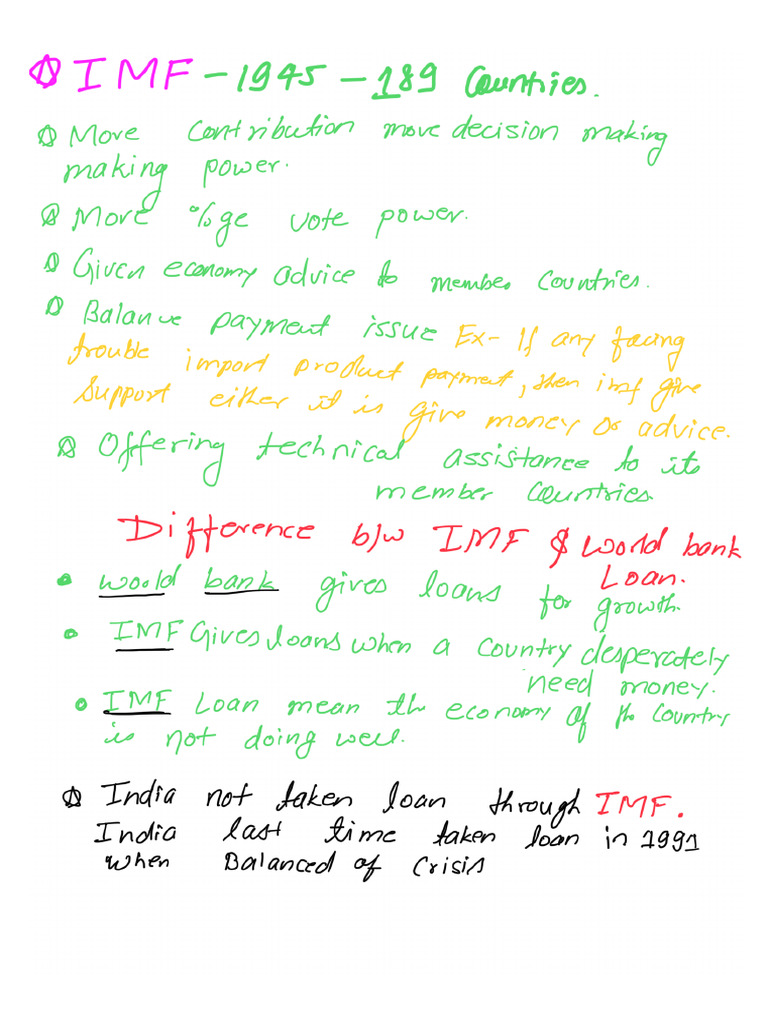 IMF - 1945 - 189 Countries.
More Contribution move decision making
making power.
More %ge vote power.
Given economy advice to member Countries.
Balance payment issue Ex- If any facing
trouble import product payment, then imf give
Support either it is give money or advice.
Offering technical assistance to its
member Countries.
Difference b/w IMF & World bank
Loan.
world bank gives loans for growth.
IMF Gives loans when a country desperately
need money.
IMF Loan mean the economy of the Country
is not doing well.
India not taken loan through IMF.
India last time taken loan in 1991
when Balanced of Crisis